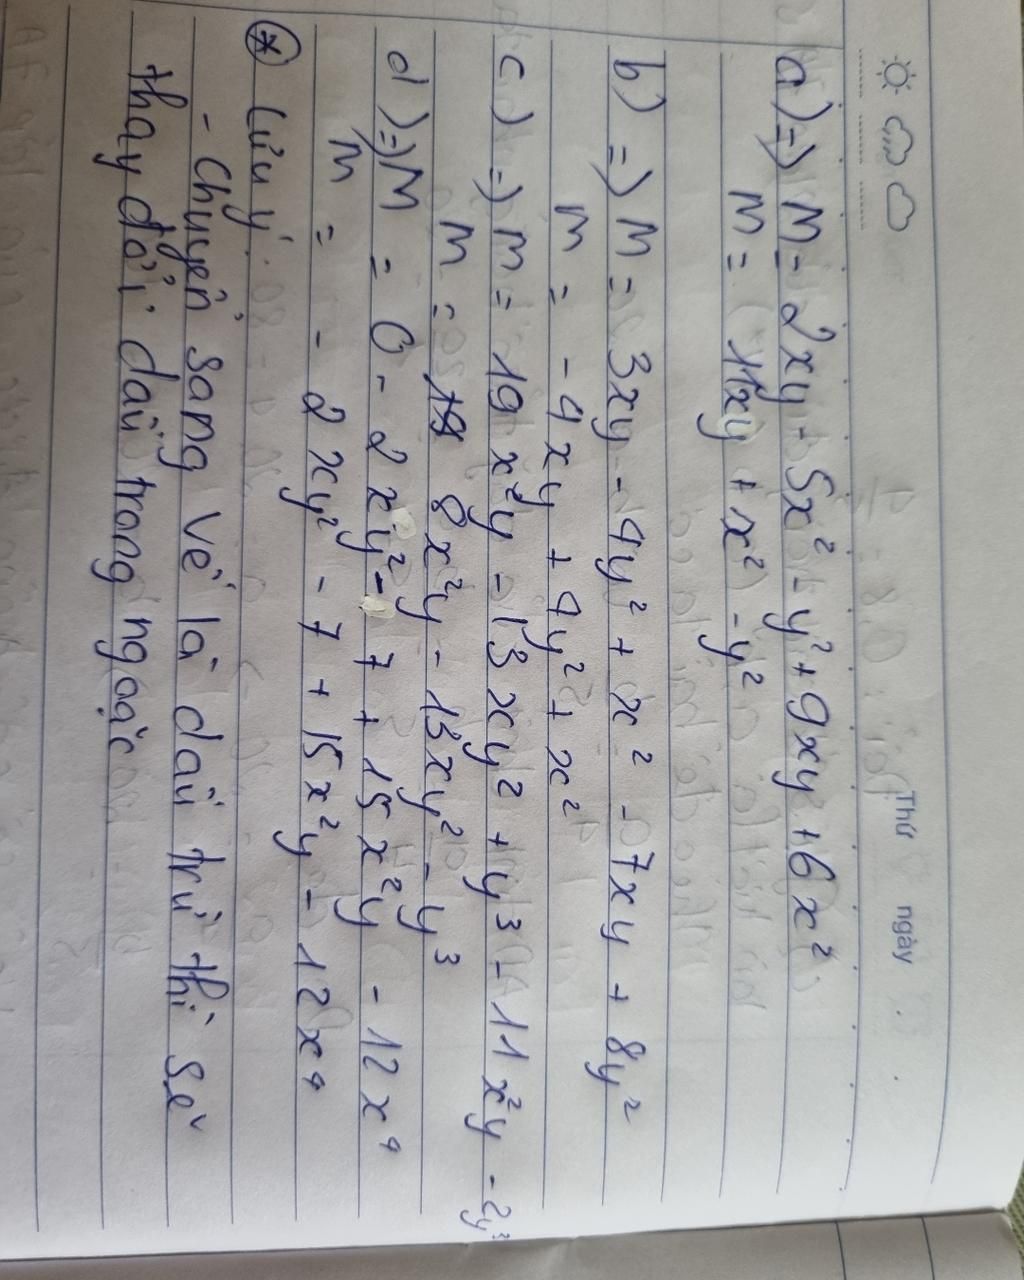 Thứ ngày
a) => M = 2xy + 5x² - y² + 9xy + 6x²
M = 11xy + x² - y²
b) => M = 3xy - 4y² + x² - 7xy + 8y²
M = -4xy + 4y² + x²
c) => M = 19x²y - 13xy² + y³ - 11x²y - 2y³
M = 8x²y - 13xy² - y³
d) => M = 0 - 2xy² - 7 + 15x²y - 12x⁴
M = - 2xy² - 7 + 15x²y - 12x⁴
* Lưu ý:
- Chuyển sang vế là dấu trừ thì sẽ
thay đổi dấu trong ngoặc